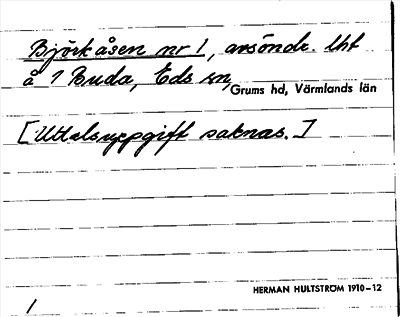 Björkåsen nr 1, avsöndr. lht
å 1 Buda, Eds sn,
Grums hd, Värmlands län
[Uttalsuppgift saknas.]
HERMAN HULTSTRÖM 1910-12
1